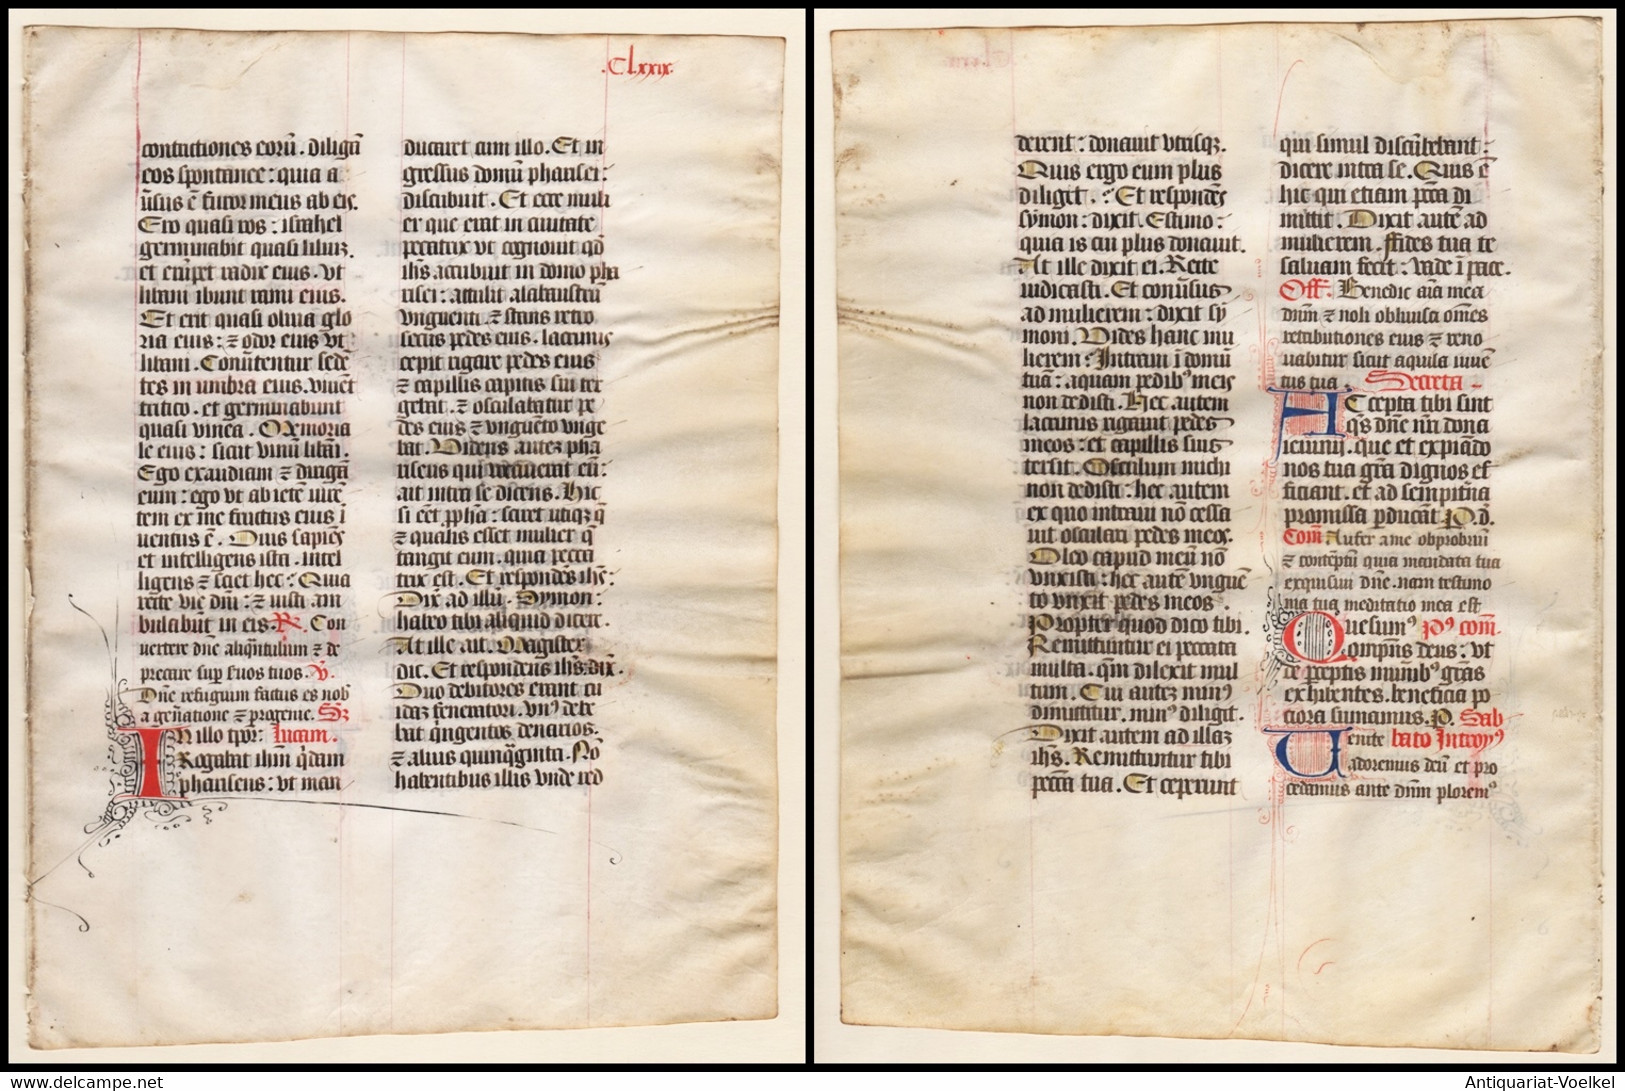 .Clxxix.
contritiones eorū. diligā
eos spontanee: quia a
ūsus ē furor meus ab eis.
Ero quasi ros: israhel
germinabit quasi liliuʒ.
et erūpet radix eius. vt
libani ibunt rami eius.
Et erit quasi oliua glo
ria eius: ⁊ odor eius vt
libani. Conūtentur sedē
tes in umbra eius. viuēt
tritico. et germinabunt
quasi vinea. Memoria
le eius: sicut vinū libāi.
Ego exaudiam ⁊ dirigā
eum: ego vt abietē uirē
tem ex me fructus eius ī
uentus ē. Quis sapiēs
et intelligens ista. intel
ligens ⁊ sciet hec: Quia
recte vie dn̄i: ⁊ iusti am
bulabūt in eis. R. Con
uertere dn̄e aliq̄ntulum ⁊ de
precare sup seruos tuos. v.
Dn̄e refugium factus es nob̄
a gen̄atione ⁊ progenie. Sʒ
IN illo tp̄r: lucam.
Rogabat ihm̄ q̄dam
phariseus: vt man
ducaret cum illo. Et in
gressus domū pharisei:
discubuit. Et ecce muli
er que erat in ciuitate
peccatrix vt cognouit qd̄
ih̄s accubuit in domo pha
risei: attulit alabaustrū
vnguenti. ⁊ stans retro
secus pedes eius. lacrimis
cepit rigare pedes eius
⁊ capillis capitis sui ter
gebat. ⁊ osculabatur pe
des eius ⁊ unguēto unge
bat. Videns auteʒ pha
riseus qui vocauerat eū:
ait intra se dicens. Hic
si eēt pp̄ha: sciret utiqʒ q̄
⁊ qualis esset mulier q̄
tangit eum. quia pecca
trix est. Et respondēs ih̄s:
Dix̄ ad illū. Symon:
habeo tibi aliquid dicere.
At ille ait. Magister
dic. Et respondens ih̄s dix̄.
Duo debitores erant cui
idaʒ feneratori. vn⁹ debe
bat q̄ngentos denarios.
⁊ alius quinq̄ginta. Nō
habentibus illis vnde red
derent: donauit vtrisqʒ.
Quis ergo eum plus
diliget. Et respondēs
symon: dixit. Estimo:
quia is cui plus donauit.
At ille dixit ei. Recte
iudicasti. Et conūsus
ad mulierem: dixit sy
moni. Vides hanc mu
lierem: Intraui ī domū
tuā: aquam pedib⁹ meis
non dedisti. Hec autem
lacrimis rigauit pedes
meos: et capillis suis
tersit. Osculum michi
non dedisti: hec autem
ex quo intraui nō cessa
uit osculari pedes meos.
Oleo capud meū nō
vnxisti: hec autē vnguē
to vnxit pedes meos.
Propter quod dico tibi.
Remittuntur ei peccata
multa. qm̄ dilexit mul
tum. Cui auteʒ min⁹
dimittitur. min⁹ diligit.
Dixit autem ad illaʒ
ih̄s. Remittuntur tibi
pecc̄a tua. Et ceperunt
qui simul discūbebant:
dicere intra se. Quis ē
hic qui etiam pecc̄a di
mittit. Dixit autē ad
mulierem. ffides tua te
saluam fecit: vade ī pace.
Off. Benedic aīa mea
dn̄m ⁊ noli obliuisci om̄es
retributiones eius ⁊ reno
uabitur sicut aquila iuuē
tus tua. Secreta
ACcepta tibi sint
q̄s dn̄e nr̄i dona
ieiunij. que et expiādo
nos tua gr̄a dignos ef
ficiant. et ad sempit̄na
promissa pducāt P. d.
Com̄ Aufer a me obprobriū
⁊ contēptū quia mandata tua
exquisiui dn̄e. nam testimo
nia tua meditatio mea est
Quesum⁹ p⁹ com̄.
om̄pn̄s deus: vt
de p̄ceptis munīb⁹ gr̄as
exhibentes. beneficia po
ciora sumamus. P. Sab
Uenite bato Introy⁹
adoremus deū et pro
cedamus ante dn̄m plorem⁹
www.delcampe.net
Antiquariat-Voelkel